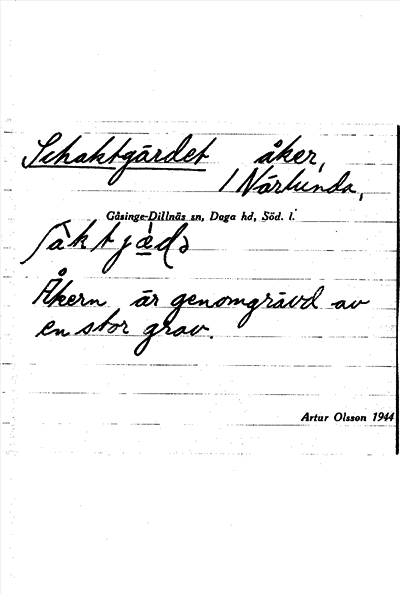 Schaktgärdet åker,
1 Närlunda,
Gåsinge-Dillnäs sn, Daga hd, Söd. l.
Åkern är genomgrävd av
en stor grav.
Artur Olsson 1944